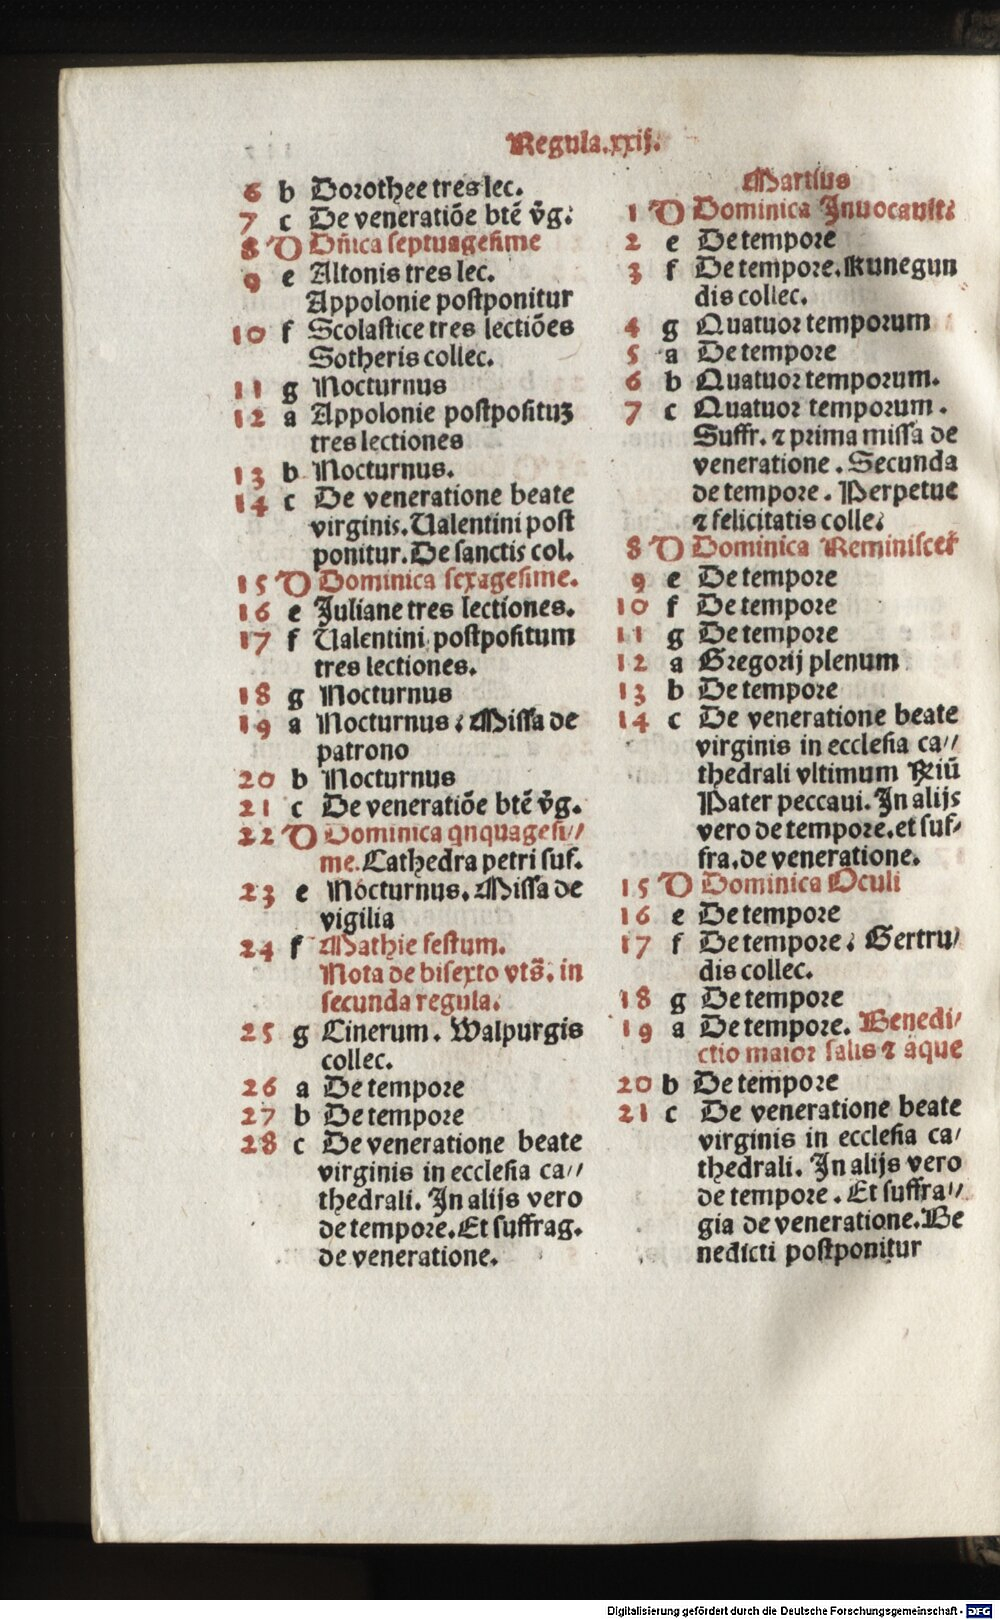 Regula.xxij.
6 b Dorothee tres lec.
7 c De veneratiōe btē v̄g.
8 D Dn̄ica septuagesime
9 e Altonis tres lec.
Appolonie postponitur
10 f Scolastice tres lectiōes
Sotheris collec.
11 g Nocturnus
12 a Appolonie postposituʒ
tres lectiones
13 b Nocturnus.
14 c De veneratione beate
virginis. Ualentini post
ponitur. De sanctis col.
15 D Dominica sexagesime.
16 e Juliane tres lectiones.
17 f Ualentini postpositum
tres lectiones.
18 g Nocturnus
19 a Nocturnus: Missa de
patrono
20 b Nocturnus
21 c De veneratiōe btē v̄g.
22 D Dominica qnquagesi//
me. Cathedra petri suf.
23 e Nocturnus. Missa de
vigilia
24 f Mathie festum.
Nota de bisexto vts̄. in
secunda regula.
25 g Cinerum. Walpurgis
collec.
26 a De tempore
27 b De tempore
28 c De veneratione beate
virginis in ecclesia ca//
thedrali. In alijs vero
de tempore. Et suffrag.
de veneratione.
Martius
1 D Dominica Inuocauit:
2 e De tempore
3 f De tempore. Kunegun
dis collec.
4 g Quatuor temporum
5 a De tempore
6 b Quatuor temporum.
7 c Quatuor temporum.
Suffr. ⁊ prima missa de
veneratione. Secunda
de tempore. Perpetue
⁊ felicitatis colle:
8 D Dominica Reminiscer̄
9 e De tempore
10 f De tempore
11 g De tempore
12 a Gregorij plenum
13 b De tempore
14 c De veneratione beate
virginis in ecclesia ca//
thedrali vltimum Rr̄iū
Pater peccaui. In alijs
vero de tempore. et suf/
fra. de veneratione.
15 D Dominica Oculi
16 e De tempore
17 f De tempore: Gertru/
dis collec.
18 g De tempore
19 a De tempore. Benedi/
ctio maior salis ⁊ aque
20 b De tempore
21 c De veneratione beate
virginis in ecclesia ca/
thedrali. In alijs vero
de tempore. Et suffra//
gia de veneratione. Be
nedicti postponitur
Digitalisierung gefördert durch die Deutsche Forschungsgemeinschaft - DFG